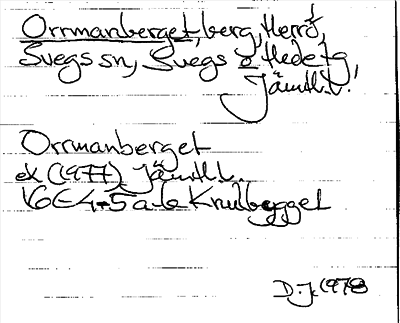 Orrmanberget, berg, Herrö,
Svegs sn, Svegs o Hede tg,
Jämtl. l.
Orrmanberget
ek (1977) Jämtl. l.
16E 4-5 a-b Knulbygget
D.J. 1978